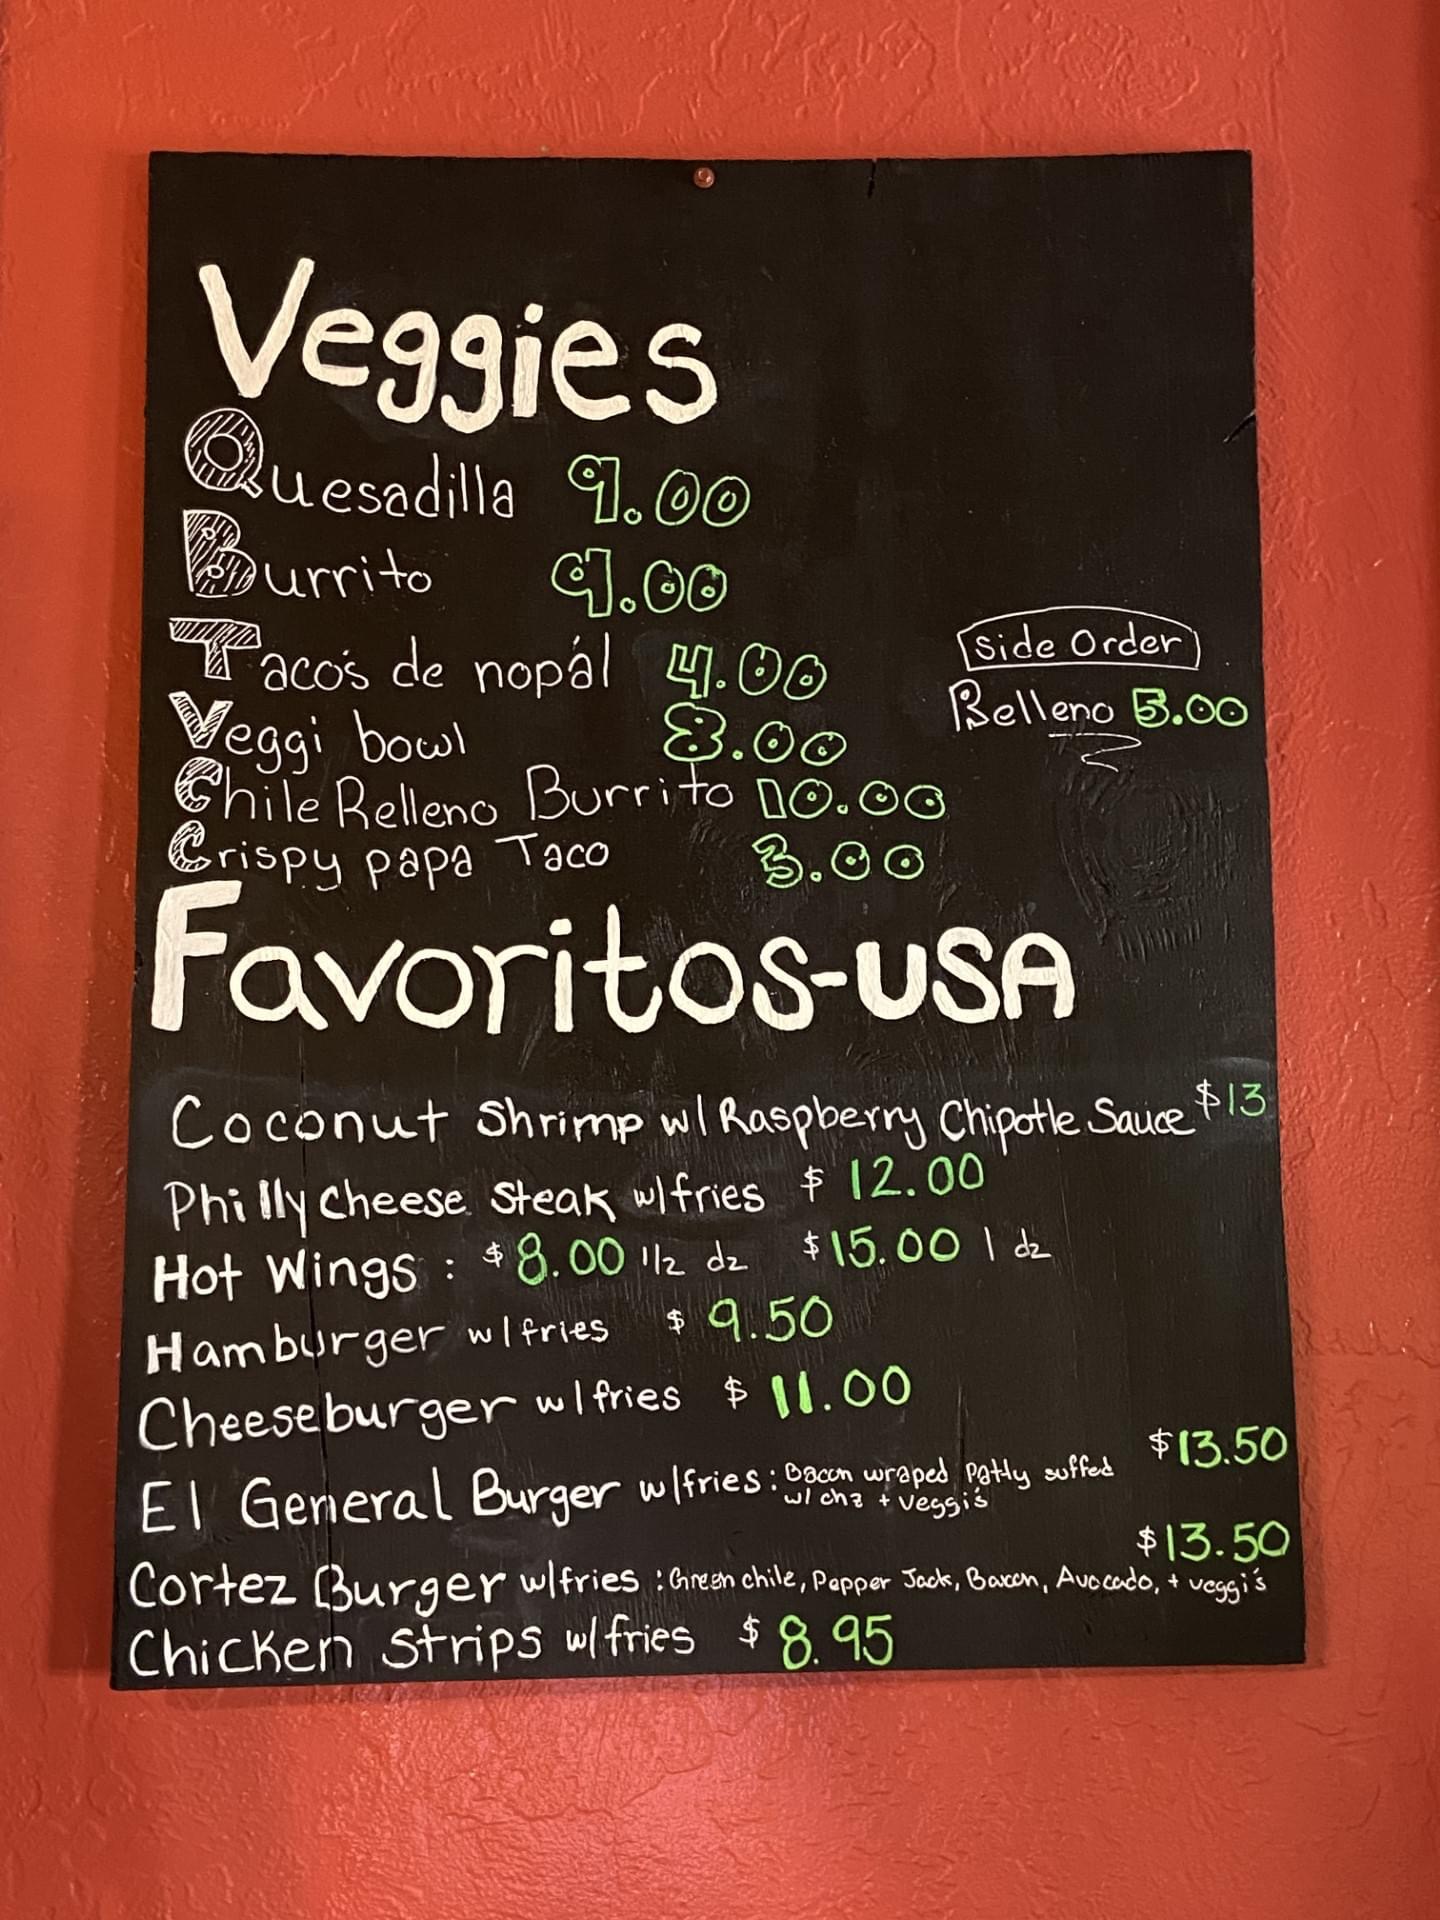 Veggies
Quesadilla 9.00
Burrito 9.00
Taco's de nopál 4.00
Veggi bowl 8.00
Chile Relleno Burrito 10.00
Crispy papa Taco 3.00
Side Order
Relleno 5.00
Favoritos-USA
Coconut Shrimp w/ Raspberry Chipotle Sauce $13
Philly Cheese Steak w/fries $ 12.00
Hot Wings : $8.00 1/2 dz $15.00 1 dz
Hamburger w/fries $ 9.50
Cheeseburger w/fries $ 11.00
El General Burger w/fries : Bacon wraped Patty suffed $13.50
w/ chz + veggi's
$13.50
Cortez Burger w/fries : Green chile, Pepper Jack, Bacon, Avocado, + veggi's
Chicken Strips w/fries $ 8.95